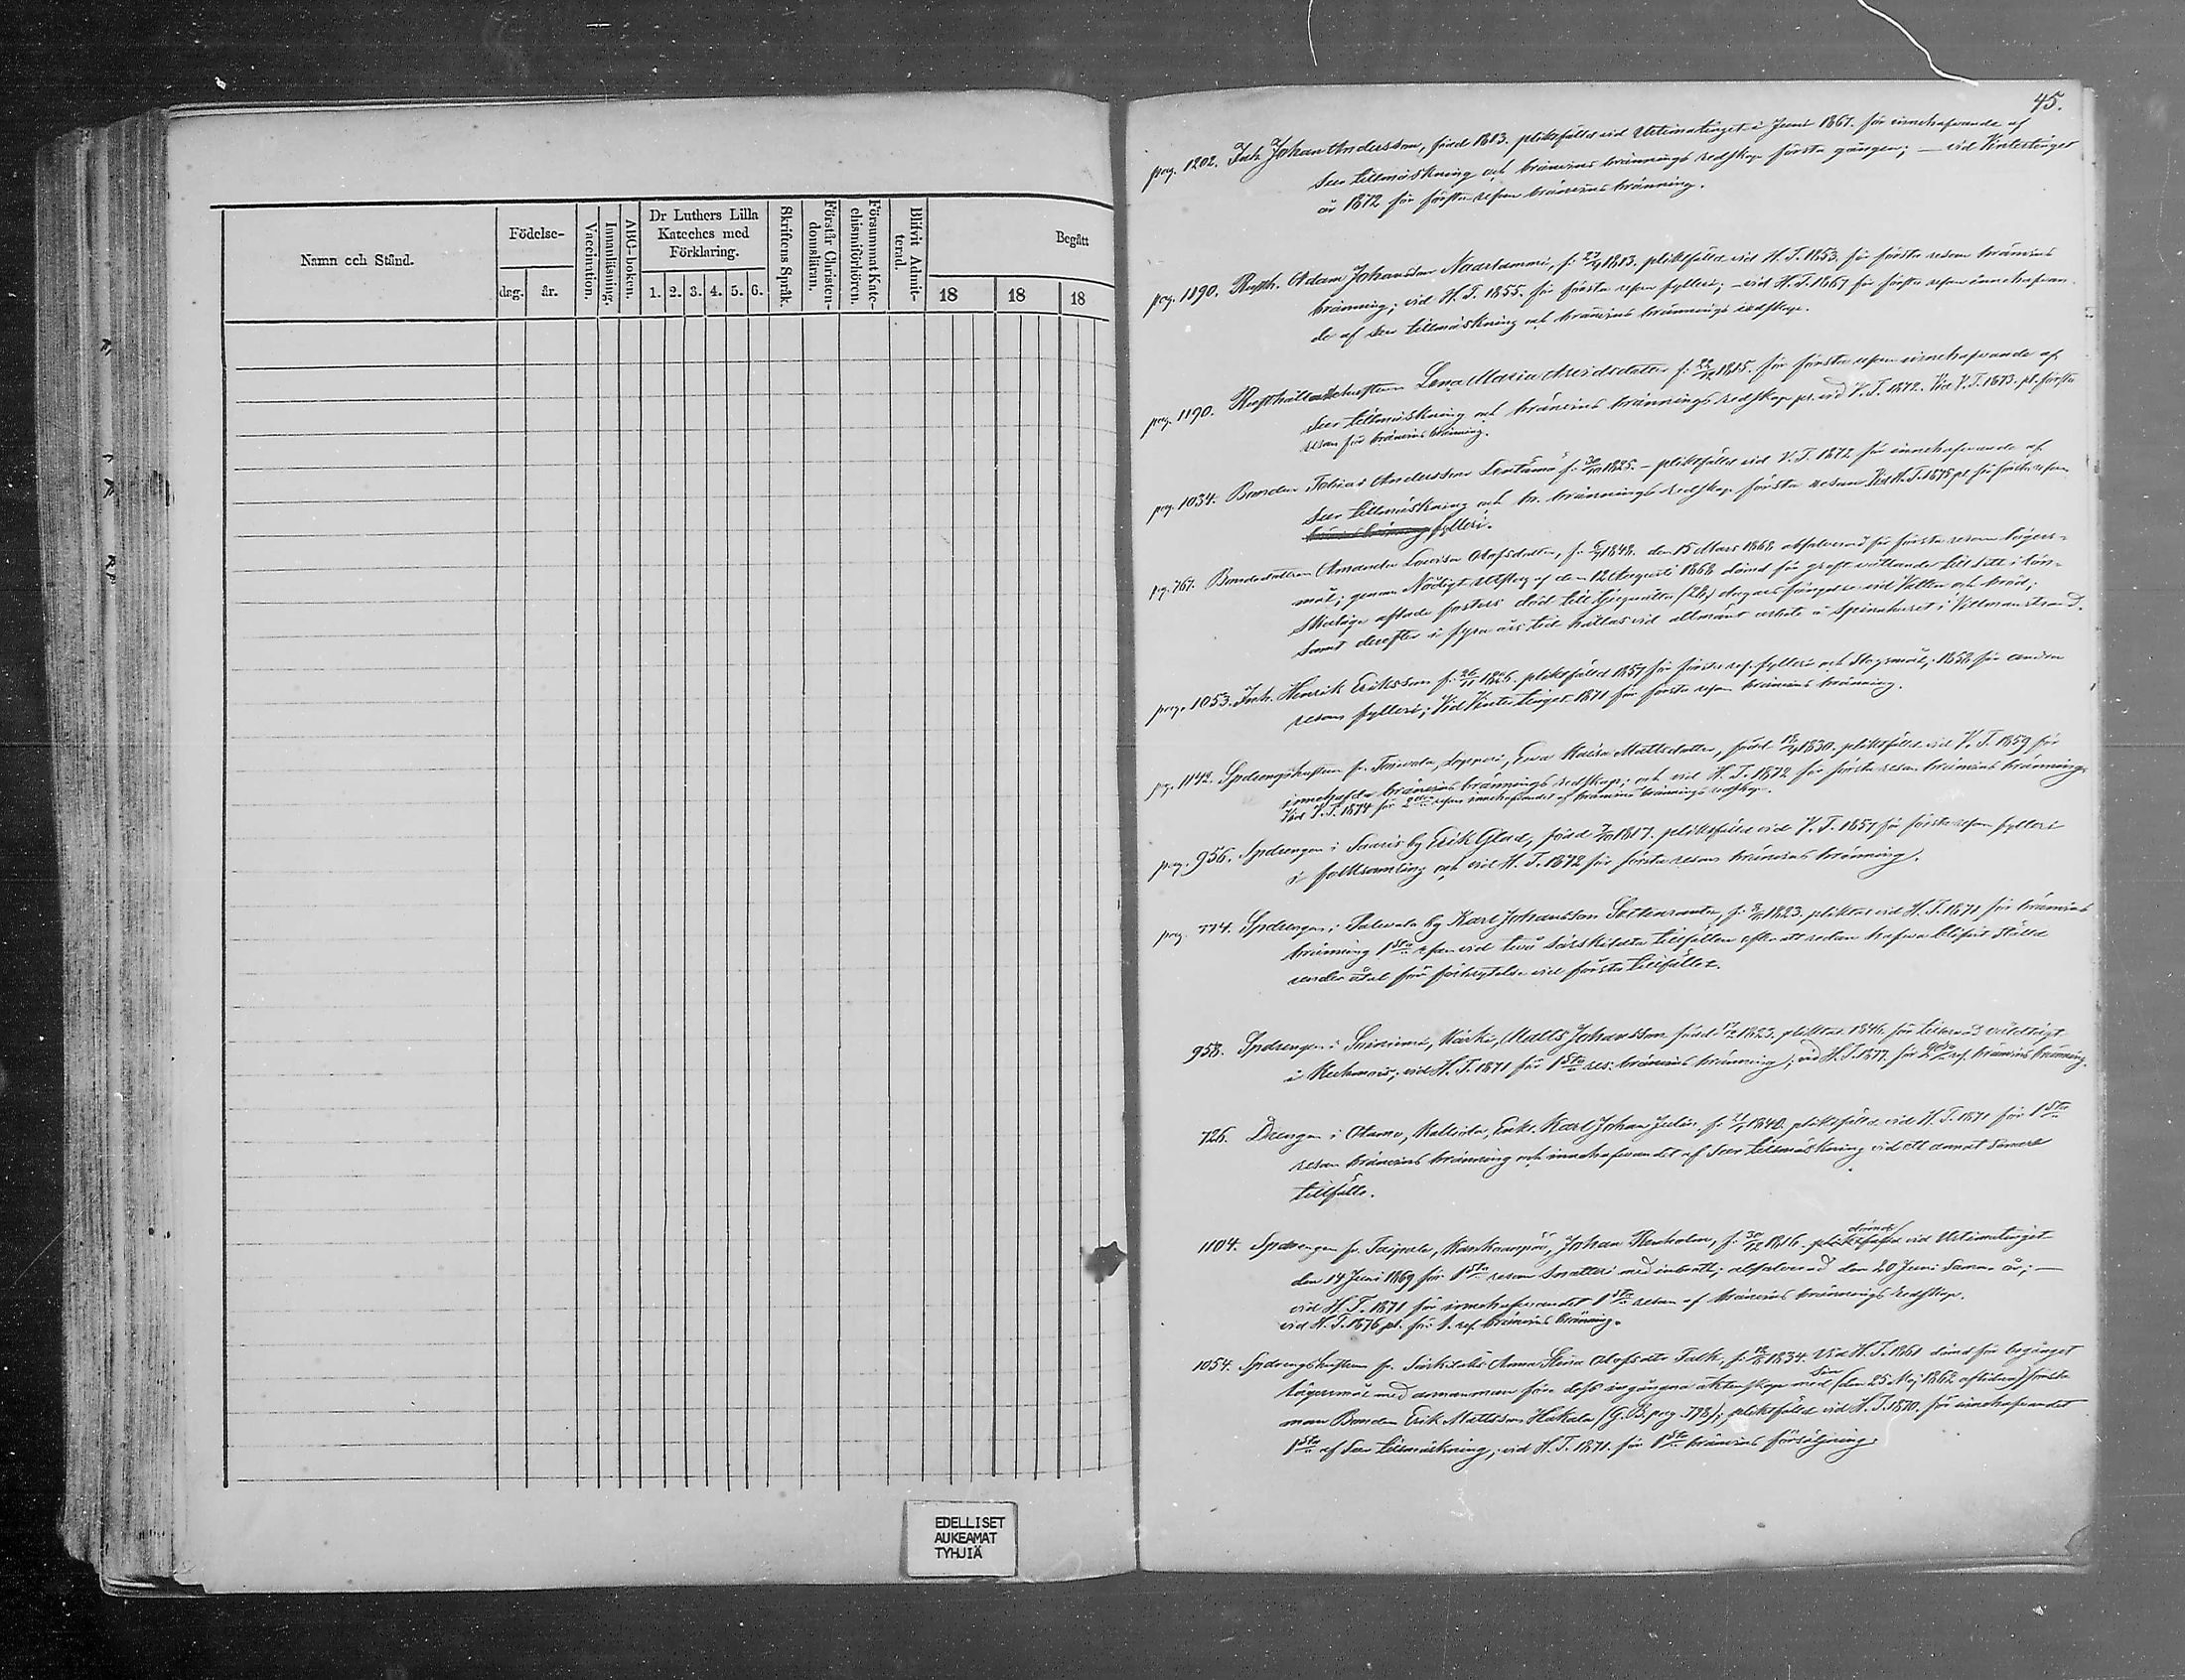 Namn och Stånd.
Födelse-
dag.
år.
Vaccination.
Innanläsning.
ABC-boken.
Dr Luthers Lilla
Kateches med
Förklaring.
1. 2. 3. 4. 5. 6.
Skriftens Språk.
Förstår Christen-
domsläran.
Försummat Kate-
chismiförhören.
Blifvit Admit-
terad.
Begått
18 18 18
EDELLISET
AUKEAMAT
TYHJIÄ
45.
pag. 1202. Inh. Johan Andersson, född 1813. pliktfälld vid Urtimatinget i Juni 1867. för innehafvande af
seer tillmäskning och bränvins brännings redskap första gången; – vid Vintertinget
år 1872 för första resan bränvins bränning.
pag. 1190. Rusth. Adam Johansson f. 1813. pliktfälld vid H. T. 1853. för första resan bränvins
bränning; vid H. T. 1855. för första resan fylleri; – vid H. T. 1867 för första resan innehafvan-
de af seer tillmäskning och bränvins brännings redskap.
pag. 1190. Lena Maria Arvidsdotter f. 22/12 1815. för första resan innehafvande af
seer tillmäskning och bränvins brännings redskap pl. vid V. T. 1872. Vid V. T. 1873. pl. första
resan för bränvins bränning.
pag. 1034. Bonden Tobias Andersson f. 1825. – pliktfälld vid V. T. 1872 för innehafvande af
seer tillmäskning och br. brännings redskap första resan Vid H. T. 1875 pl. för första resan
fylleri.
pag. 767. Bondedottren Amanda Lovisa Olofsdotter, f. 1848. den 15 Mars 1868 absolverad för första resan lägers-
mål; genom Nådigt utslag af den 12 Augusti 1868 dömd för groft vållande till sitt i lön-
skaläge aflade fosters död till tjuguåtta (28) dagars fängelse vid Vatten och bröd;
samt derefter i fyra års tid hållas vid allmänt arbete å Spinnhuset i Villmanstrand.
pag. 1053. Inh. Henrik Eriksson f. 26/11 1826. pliktfälld 1857 för första res. fylleri och slagsmål; 1858 för andra
resans fylleri; Vid Vintertinget 1871 för första resan bränvins bränning.
pag. 1142. Eva Kaisa Mattsdotter, född 1830. pliktfälld vid V. T. 1859 för
innehafda bränvins brännings redskap; och vid H. T. 1872 för första resan bränvins bränning.
Vid V. T. 1874 för 2dra resan innehafvandet af bränvins brännings redskap.
pag. 956. Spdrengen i Sauris by Erik Glad, född 1817. pliktfälld vid V. T. 1857 för första resan fylleri
i folksamling och vid H. T. 1872 för första resans bränvins bränning.
pag. 774. Spdrengen i by Karl Johansson f. 1823. pliktat vid H. T. 1871 för bränvins
bränning 1sta resan vid två särskildta tillfällen efter att redan hafva blifvit ställd
under åtal för förbrytelse vid första tillfället.
958. Spdrengen i Matts Johansson född 1823. pliktat 1846. för våldtägt
vid H. T. 1871 för 1sta res. bränvins bränning; vid H. T. 1877. för 2dra res. bränvins bränning.
726. Drengen i Karl Johan f. 1840. pliktfälld vid H. T. 1871 för 1sta
resan bränvins bränning och innehafvandet af seer tillmäskning vid ett annat senare
tillfälle.
1104. Spdrengen fr. Taipale, Johan f. 30/12 1816. dömd vid Urtimatinget
den 14 Juni 1869 för 1sta resan snatteri med inbrott; absolverad den 20 Juni samma år; –
vid H. T. 1871 för innehafvandet 1sta resan af bränvins brännings redskap.
vid H. T. 1876 pl. för 1. res. bränvins bränning.
1054. Anna Stina Olofsdr Falk, f. 1834. Vid H. T. 1861 dömd för begånget
lägersmål med annan man före dess ingångna äktenskap med sin (den 25 Maj 1862 aflidna) första
man Bonden Erik Mattsson Hakala (G. B. pag. 598); pliktfälld vid H. T. 1870. för innehafvandet
1sta af seer tillmäskning; vid H. T. 1871. för 1sta bränvins försäljning.